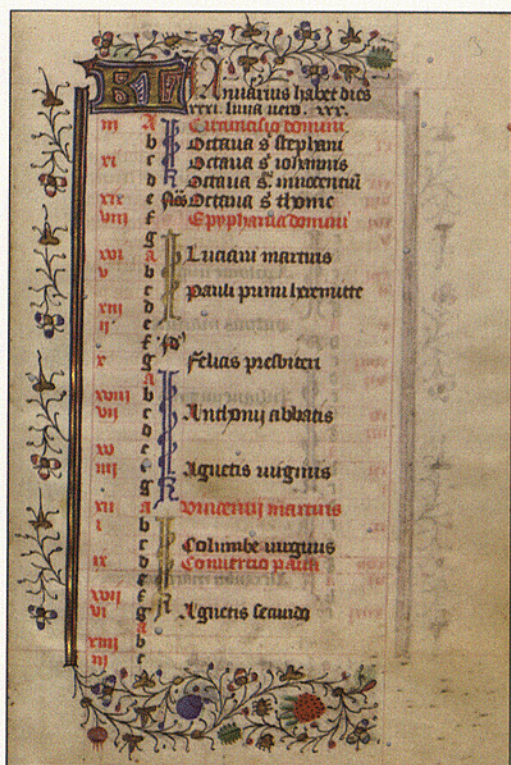 KL Januarius habet dies
xxxi. luna vero. xxx.
iii A Circumcisio domini
b Octava s stephani
xi c Octava s iohannis
d Octava s innocentiu
xix e Nōs Octava s thome
viii f Epyphania domini
g
xvi a Luciani martiris
v b
c Pauli primi heremitte
xiii d
ii e
f Id'
x g Felicis presbiteri
a
xviii b
vii c Anthonij abbatis
d
xv e
iiii f Agnetis virginis
g
xii a Vincentij martiris
i b
c Columbe virginis
ix d Conversio pauli
e
xvii f
vi g Agnetis secundo
a
xiiii b
iij c